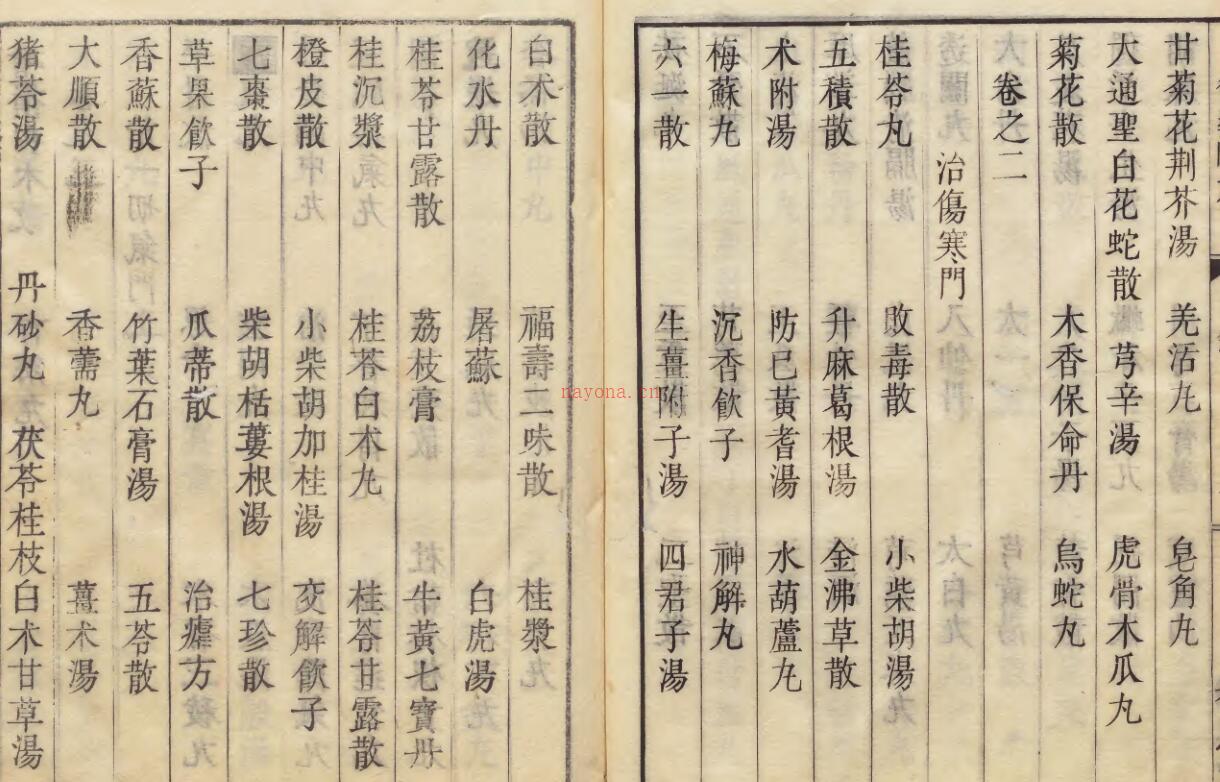 甘菊花荆芥湯 羌活丸 皂角丸
大通聖白花蛇散 芎辛湯 虎骨木瓜丸
菊花散 木香保命丹 烏蛇丸
卷之二
治傷寒門
桂苓丸 敗毒散 小柴胡湯
五積散 升麻葛根湯 金沸草散
术附湯 防巳黃耆湯 水葫蘆丸
梅蘇丸 沉香飲子 神解丸
六一散 生薑附子湯 四君子湯
白术散 福壽二味散 桂漿
化水丹 屠蘇 白虎湯
桂苓甘露散 荔枝膏 牛黃七寶丹
桂沉漿 桂苓白术丸 桂苓甘露散
橙皮散 小柴胡加桂湯 交解飲子
七棗散 柴胡栝蔞根湯 七珍散
草果飲子 瓜蒂散 治瘧方
香蘇散 竹葉石膏湯 五苓散
大順散 香薷丸 薑术湯
猪苓湯 丹砂丸 茯苓桂枝白术甘草湯
nayona.cn